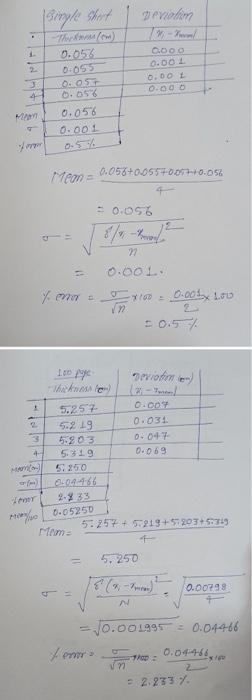 Single Sheet | Deviation
Thickness (cm) | |xi - xmean|
1 0.056 0.000
2 0.055 0.001
3 0.057 0.001
4 0.056 0.000
Mean 0.056
σ 0.001
% error 0.5%
Mean = 0.056+0.055+0.057+0.056 / 4
= 0.056
σ = √ Σ|xi - xmean|² / n
= 0.001.
% error = σ/√n × 100 = 0.001/2 × 100
= 0.5 %
100 page | Deviation (cm)
Thickness (cm) | (xi - xmean)
1 5.257 0.007
2 5.219 0.031
3 5.203 0.047
4 5.319 0.069
mean(cm) 5.250
σ(cm) 0.04466
% error 2.233
Mean/100 0.05250
Mean = 5.257 + 5.219 + 5.203 + 5.319 / 4
= 5.250
σ = √ Σ(xi - xmean)² / N = √ 0.00798 / 4
= √0.001995 = 0.04466
% error = σ/√n ×100 = 0.04466/2 ×100
= 2.233 %